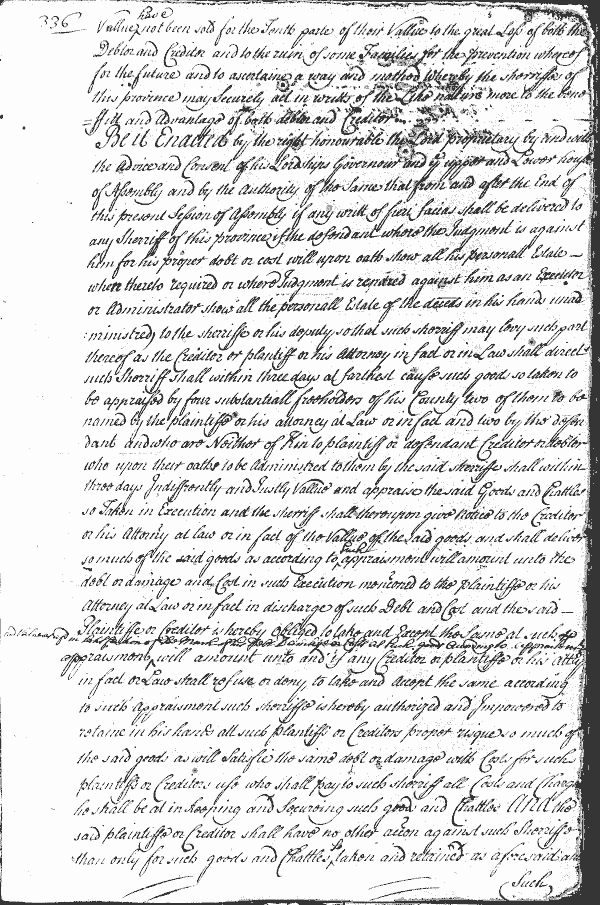 336
have
Vallue, not been sold for the Tenth parte of their Vallue to the great Loss of both the
Debtor and Creditor and to the ruin of some Families for the prevention whereof
for the future and to ascertaine a way and method whereby the sherriffe of
this province may Securely act in writts of the Like nature more to the bene
=fitt and Advantage of both debtor and Creditor
Be it Enacted by the right honourable the Lord proprietary by and with
the Advice and Consent of his Lordships Governour and ye upper and Lower house
of Assembly and by the Authority of the Same that from and after the End of
this present Session of Assembly if any writt of fieri facias shall be delivered to
any Sherriff of this province if the defendant where the Judgment is against
him for his proper debt or cost will upon oath show all his personall Estate
when thereto required or where Judgment is repaired against him as an Executor
or Administrator show all the personall Estate of the deceds in his hands unad
ministred, to the sherriffe or his deputy so that such sherriff may levy such part
thereof as the Creditor or plantiff or his Attorney in fact or in Law shall direct
such Sherriff shall within three days at farthest cause such goods so taken to
be appraised by four substantiall freeholders of his County two of them to be
named by the plaintiffe or his attorney at Law or in fact and two by the defen
dant and who are Neither of Kin to plaintiff or defendant Creditor or debtor
who upon their oaths to be Administred to them by the said sherriffe shall within
three days Indifferently and Justly Vallue and appraise the said Goods and Chattles
so Taken in Execution and the sherriff shall thereupon give notice to the Creditor
or his Attorny at law or in fact of the Vallue of the said goods and shall deliver
so much of the said goods as according to such appraisment will amount unto the
debt or damage and Cost in such Execution mentioned to the plaintiffe or his
Attorney at Law or in fact in discharge of such Debt and Cost and the said
Plaintiffe or Creditor is hereby obliged to take and Except the Same at such
appraisment will amount unto and if any Creditor or plaintiffe or his Atty
in fact or Law shall refuse or deny to take and Accept the same according
to such Appraisment such sherriffe is hereby authorized and Impowered to
retaine in his hands all such plaintiffs or Creditors proper risque so much of
the said goods as will Satisfie the same debt or damage with Costs for such
plaintiffs or Creditors use who shall pay to such sherriff all Costs and Charge
he shall be at in Keeping and Secureing such goods and Chattles And the
said plaintiffe or Creditor shall have no other action against such Sherriffe
than only for such goods and Chattles so taken and retained as aforesaid and
Such